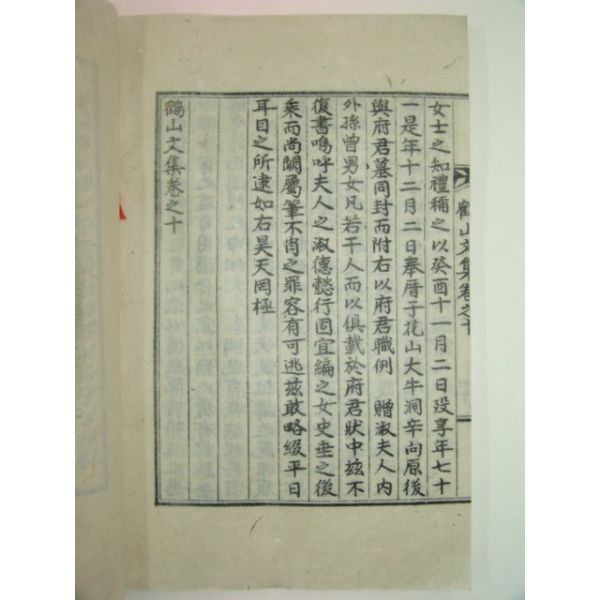 鶴山文集卷之十
女士之知禮稱之以癸酉十一月二日歿享年七十
一是年十二月二日奉厝于花山大牛洞辛向原後
與府君墓同封而附右以府君職例 贈淑夫人内
外孫曾男女凡若干人而以俱載於府君狀中玆不
復書嗚呼夫人之淑德懿行固宜編之女史垂之後
乘而尚闕屬筆不肖之罪容有可逃玆敢略綴平日
耳目之所逮如右昊天罔極
鶴山文集卷之十